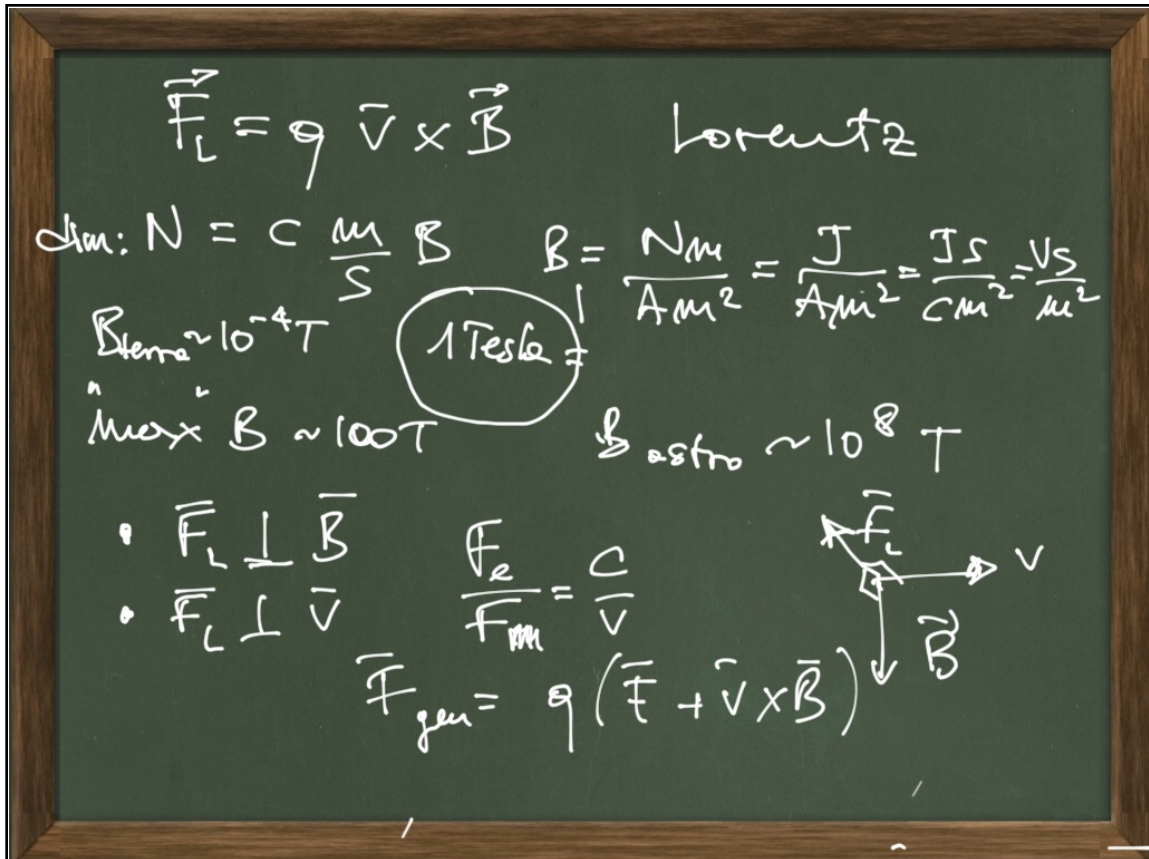 F⃗_L = q v̄ × B⃗ Lorentz
dim: N = C m/s B B = Nm/Am² = J/Am² = Js/Cm² = Vs/m²
B_terra ~ 10⁻⁴ T 1 Tesla =
"max" B ~ 100T B_astro ~ 10⁸ T
• F̄_L ⊥ B̄
• F̄_L ⊥ v̄
F_e/F_m = c/v
F̄_L
v
B⃗
F̄_gen = q (Ē + v̄ × B̄)